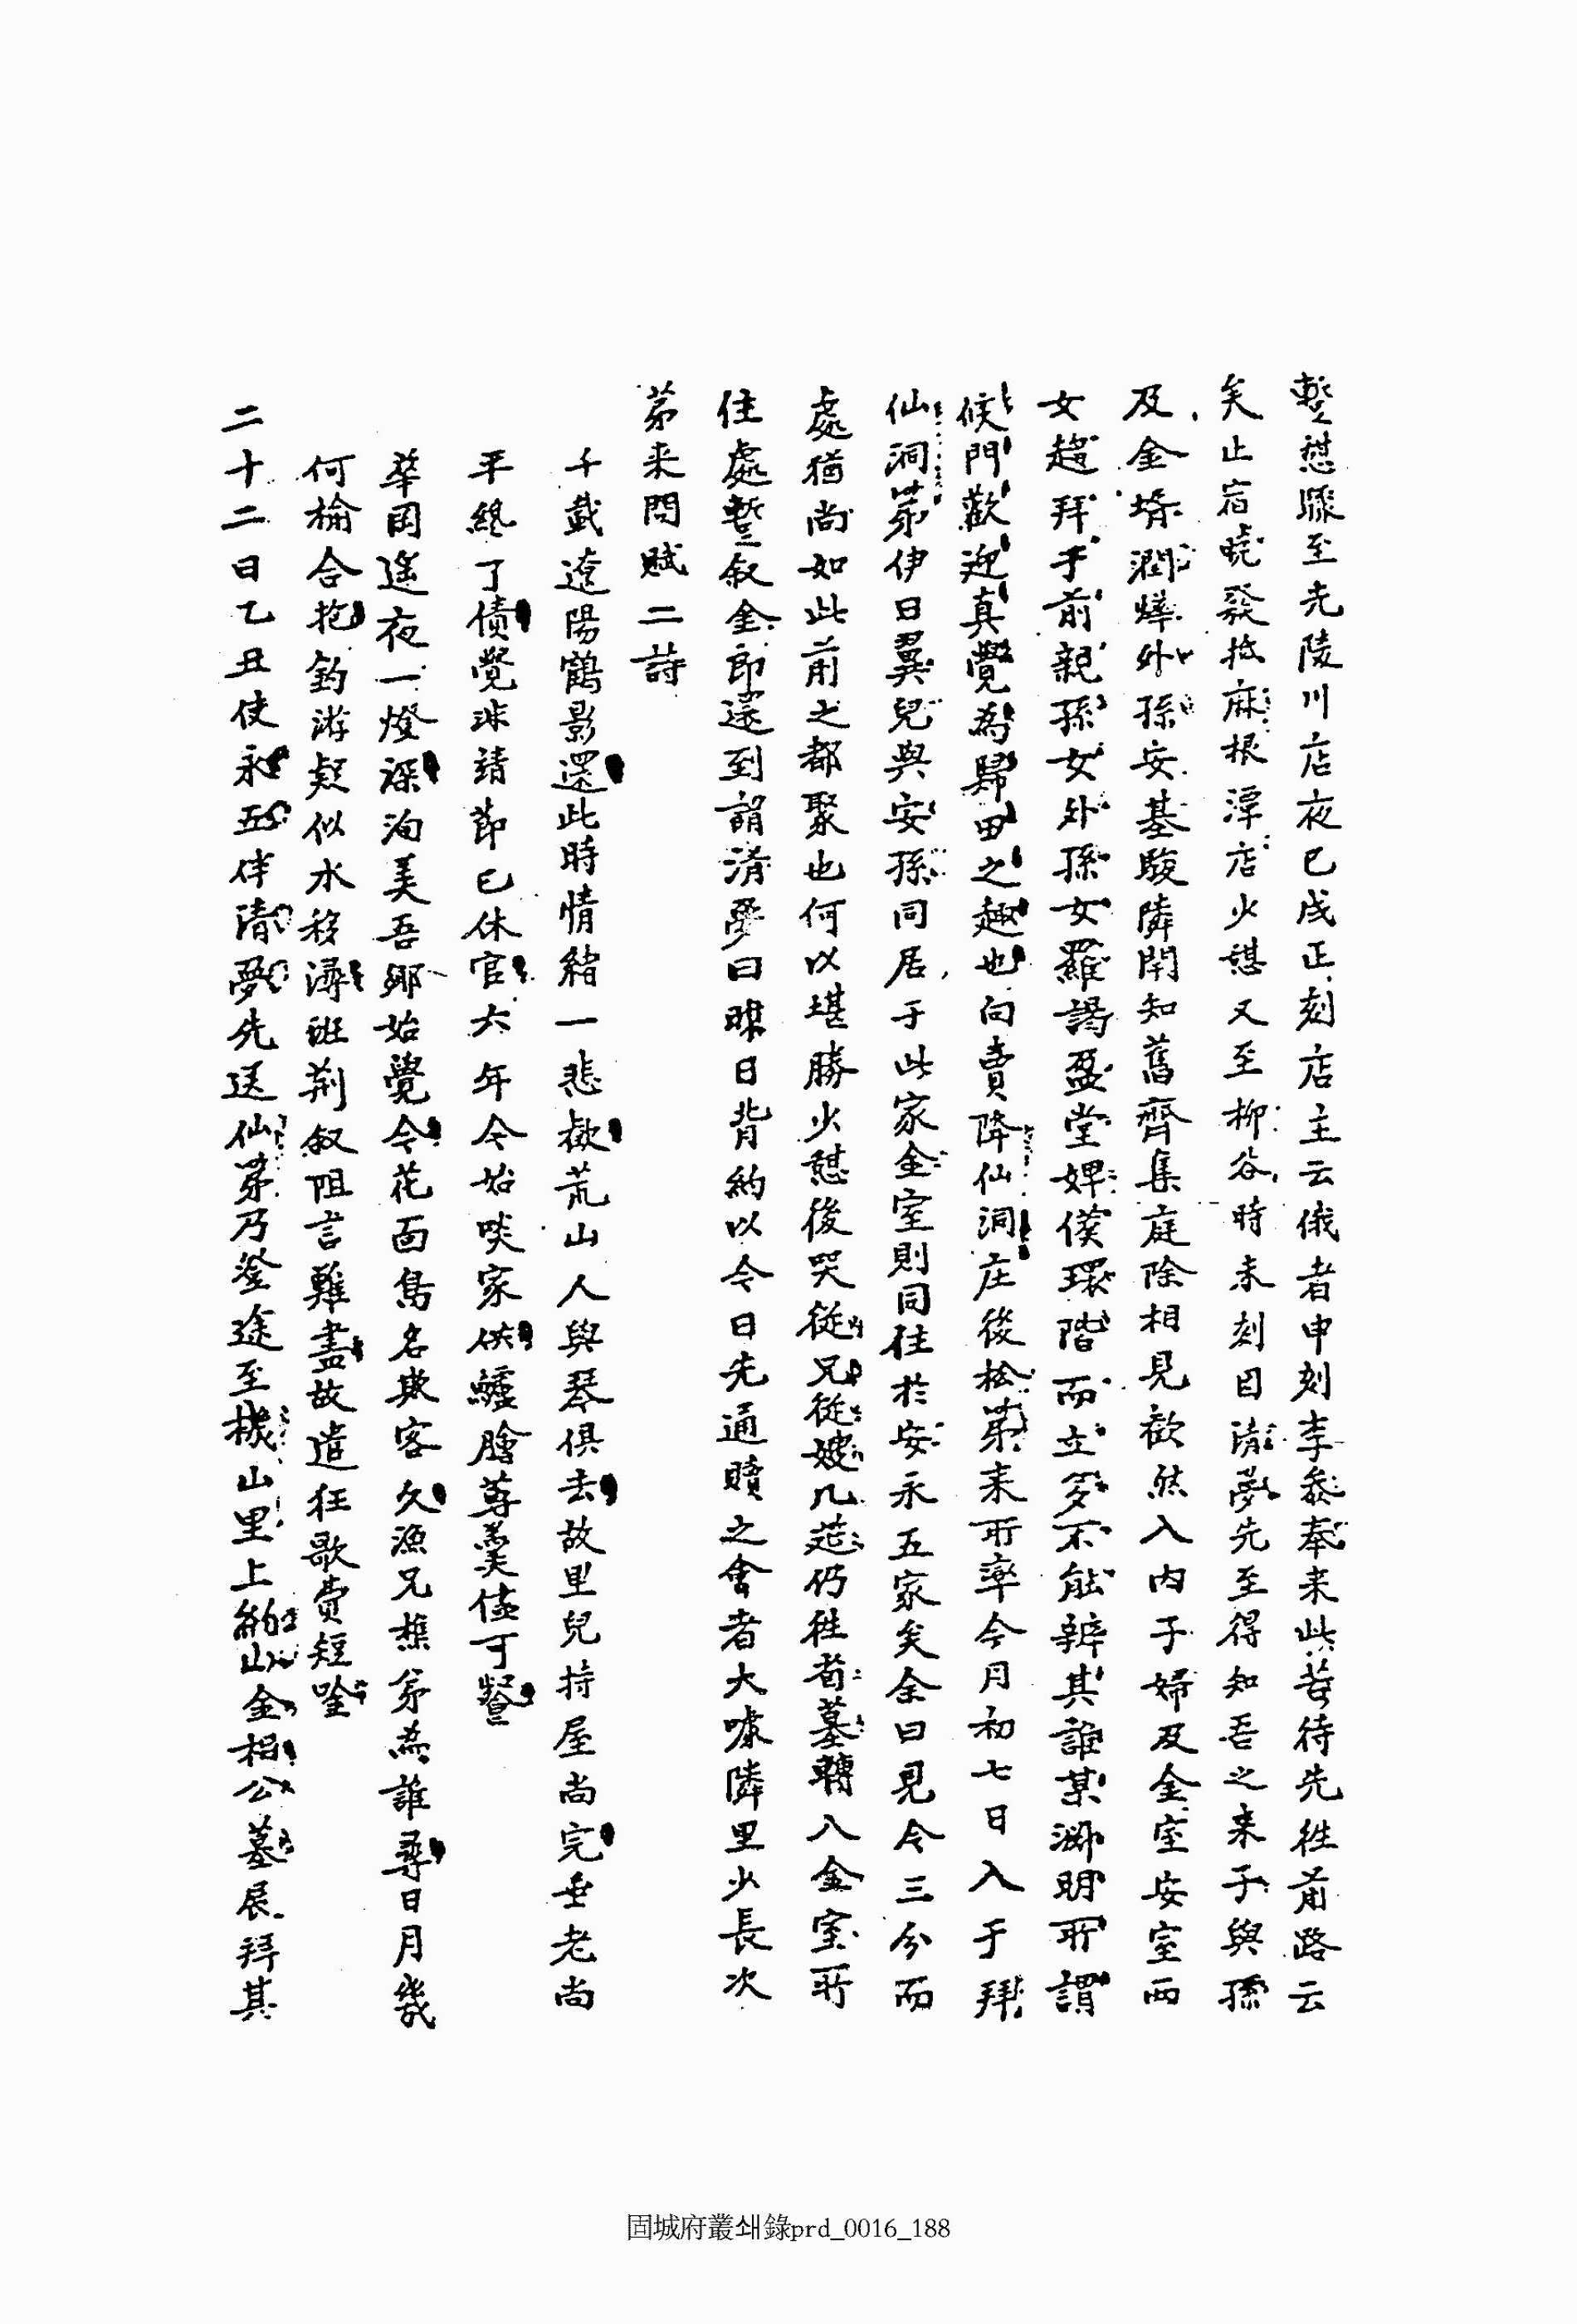 暫憇驟至先陵川店夜已戌正刻店主云俄者申刻李叅奉来此苦待先徃前路云
矣止宿曉發抵麻根潭店少憇又至柳谷時未刻目淸夢先至得知吾之来子與孫
及金壻潤燁外孫安基駿隣閈知舊齊集庭除相見歡然入內子婦及金室安室両
女趍拜于前親孫女外孫女羅謁盈堂婢僕環階而立多不能辨其誰某淵明所謂
候門歡迎真覺為歸田之趣也向賣降仙洞庄後松苐来所率今月初七日入于拜
仙洞苐伊日翼兒與安孫同居于此家金室則同住於安永五家矣余曰見今三分而
處猶尚如此前之都聚也何以堪勝少憇後哭從兄從嫂几筵仍徃省墓轉入金室所
住處暫叙金郎還到謂淸夢曰昨日背約以今日先通贖之會者大噱隣里少長次
苐来問賦二詩
千載遼陽鶴影還此時情緒一悲歡荒山人與琴俱去故里兒持屋尚完垂老尚
平終了債覺非靖節已休官六年今始啖家供鱸膾蓴羮儘可餐
華園遙夜一燈深洵美吾鄉始覺今花面鳥名欺客久漁兄樵弟為誰尋日月幾
何楡合抱釣游疑似水移潯班荊叙阻言難盡故遣狂歌費短唫
二十二日乙丑使永五伴淸夢先送仙苐乃登途至機山里上納山金相公墓展拜其
固城府叢쇄錄prd_0016_188